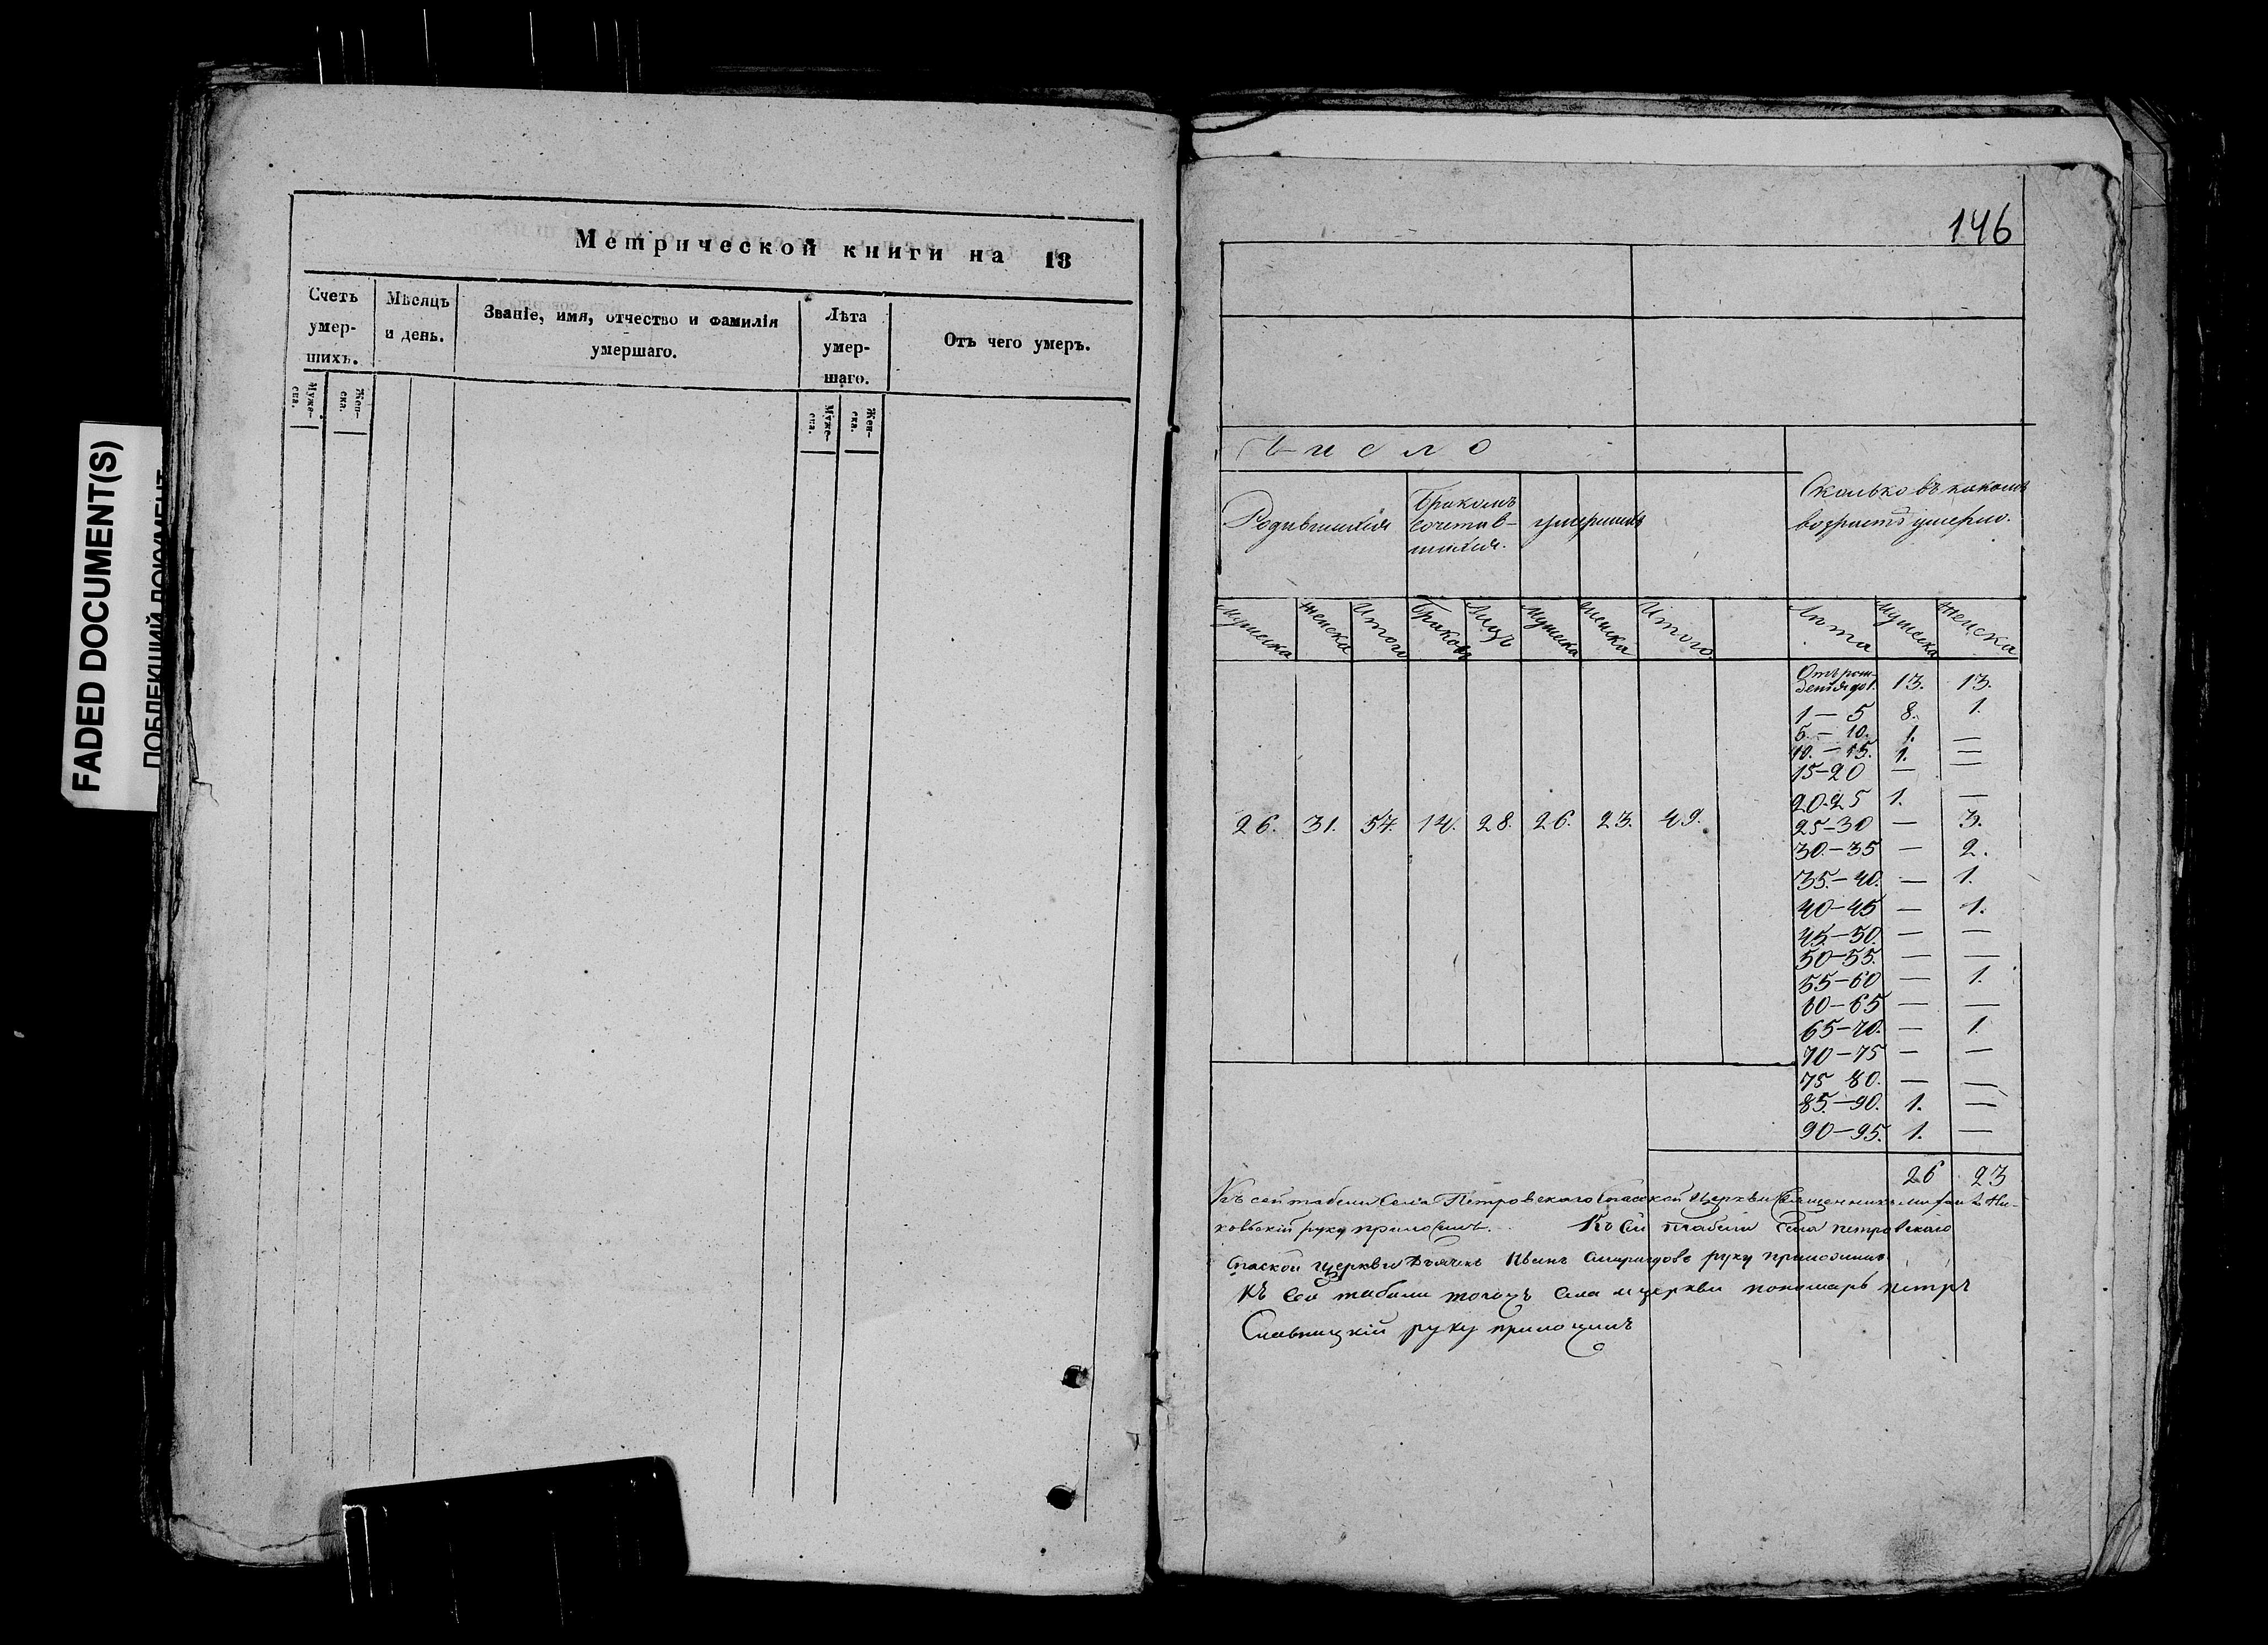 FADED DOCUMENT(S)
ПОБЛЕКШИЙ ДОКУМЕНТ
Метрической книги на 18
Счетъ
умер-
шихъ.
Муже-
ска.
Жен-
ска.
Мѣсяцъ
и день.
Званіе, имя, отчество и фамилія
умершаго.
Лѣта
умер-
шаго.
Муже-
ска.
Жен-
ска.
Отъ чего умеръ.
146
Число
Родившихся
Бракомъ
сочетав-
шихся.
умершихъ
Сколько въ какомъ
возрастѣ умерло.
Мужеска Женска Итого Браковъ Лицъ Мужеска Женска Итого Лѣта Мужеска Женска
Отъ рож-
денія до 1. 13. 13.
1 — 5 8. 1.
5. — 10. 1. —
10. — 15. 1. —
15 — 20 — —
20-25 1. —
26. 31. 57. 14. 28. 26. 23. 49.
25-30 — 3.
30. — 35 — 2.
35. — 40. — 1.
40 — 45 — 1.
45 — 50. — —
50 — 55. — —
55 — 60 — 1.
60 — 65 — —
65 — 70. — 1.
70 — 75 — —
75 80. — —
85. — 90. 1. —
90 — 95. 1. —
26 23
Къ сей табели Села Петровскаго Спасской Церкви Священникъ
руку приложилъ. Къ сей табели села петровскаго
спаской церкви Дьячекъ Иванъ Спиридовъ руку приложилъ
Къ сей табели тогожъ села и церкви пономарь петръ
Славницкій руку приложилъ